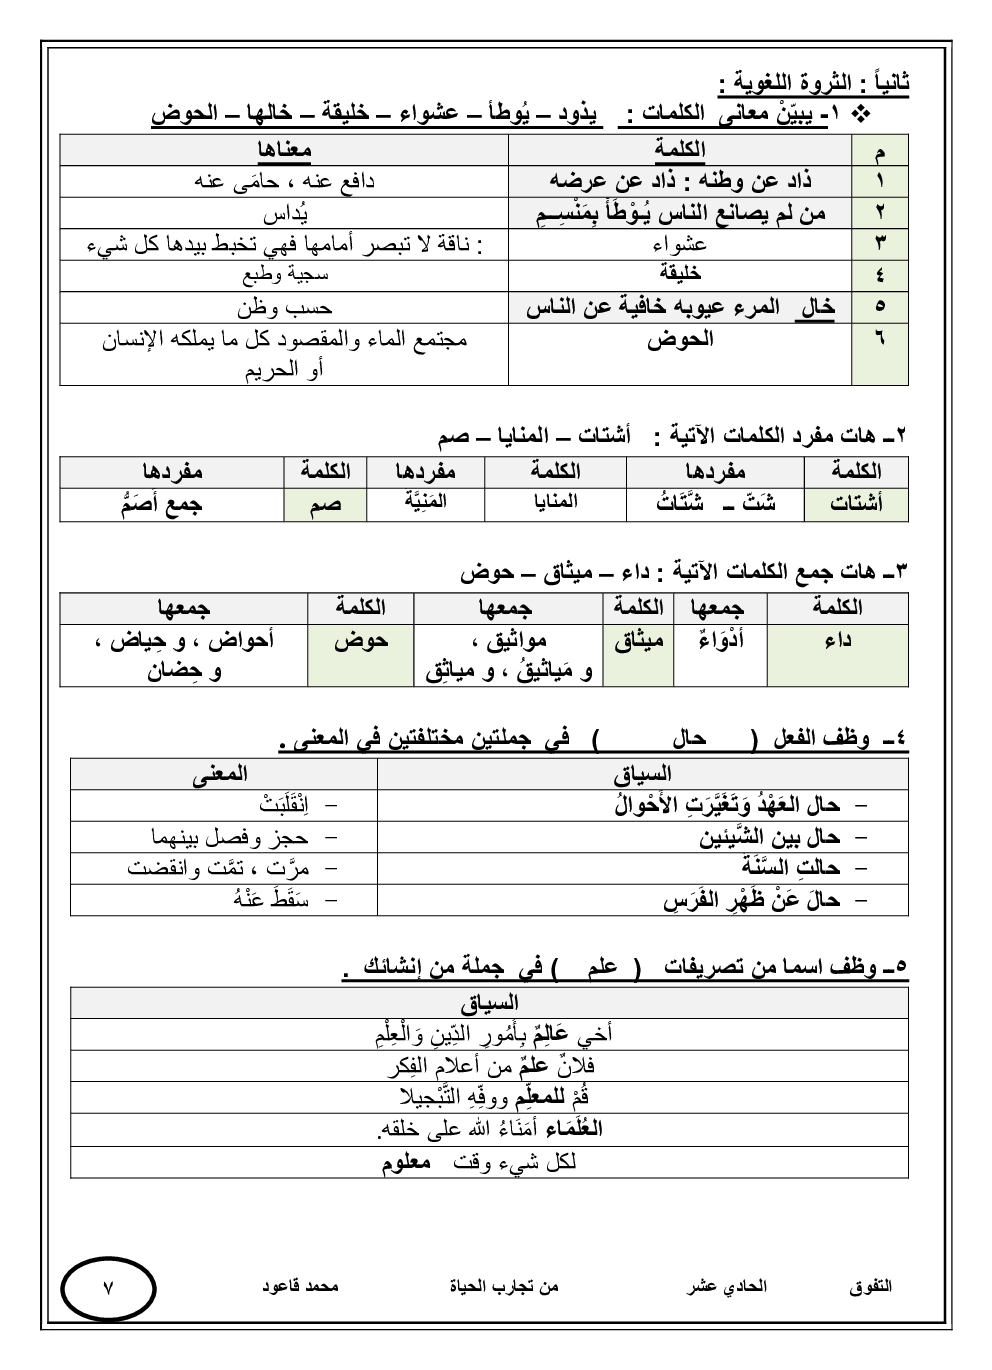 ثانياً : الثروة اللغوية :
❖ ١- يبيّنْ معاني الكلمات : يذود – يُوطأ – عشواء – خليقة – خالها – الحوض
م الكلمة معناها
١ ذاد عن وطنه : ذاد عن عرضه دافع عنه ، حامَى عنه
٢ من لم يصانع الناس يُوْطَأْ بِمَنْسِـمِ يُداس
٣ عشواء : ناقة لا تبصر أمامها فهي تخبط بيدها كل شيء
٤ خليقة سجية وطبع
٥ خال المرء عيوبه خافية عن الناس حسب وظن
٦ الحوض مجتمع الماء والمقصود كل ما يملكه الإنسان
أو الحريم
٢ــ هات مفرد الكلمات الآتية : أشتات – المنايا – صم
الكلمة مفردها الكلمة مفردها الكلمة مفردها
أشتات شَتّ ــ شَّتَاتُ المنايا المَنِيَّة صم جمع أَصَمُّ
٣ــ هات جمع الكلمات الآتية : داء – ميثاق – حوض
الكلمة جمعها الكلمة جمعها الكلمة جمعها
داء أدْوَاءٌ ميثاق مواثيق ، حوض أحواض ، و حِياض ،
و مَياثيقُ ، و مياثِق و حِضان
٤ــ وظف الفعل ( حال ) في جملتين مختلفتين في المعنى .
السياق المعنى
– حال العَهْدُ وَتَغَيَّرَتِ الأَحْوالُ – اِنْقَلَبَتْ
– حال بين الشَّيئين – حجز وفصل بينهما
– حالتِ السَّنَة – مرَّت ، تمَّت وانقضت
– حالَ عَنْ ظَهْرِ الفَرَسِ – سَقَطَ عَنْهُ
٥ــ وظف اسما من تصريفات ( علم ) في جملة من إنشائك .
السياق
أخي عَالِمٌ بِأُمُورِ الدِّينِ وَالْعِلْمِ
فلانٌ علمٌ من أعلام الفِكر
قُمْ للمعلِّم ووفِّهِ التَّبْجيلا
العُلَمَاء أمَنَاءُ الله على خلقه.
لكل شيء وقت معلوم
التفوق الحادي عشر من تجارب الحياة محمد قاعود ٧